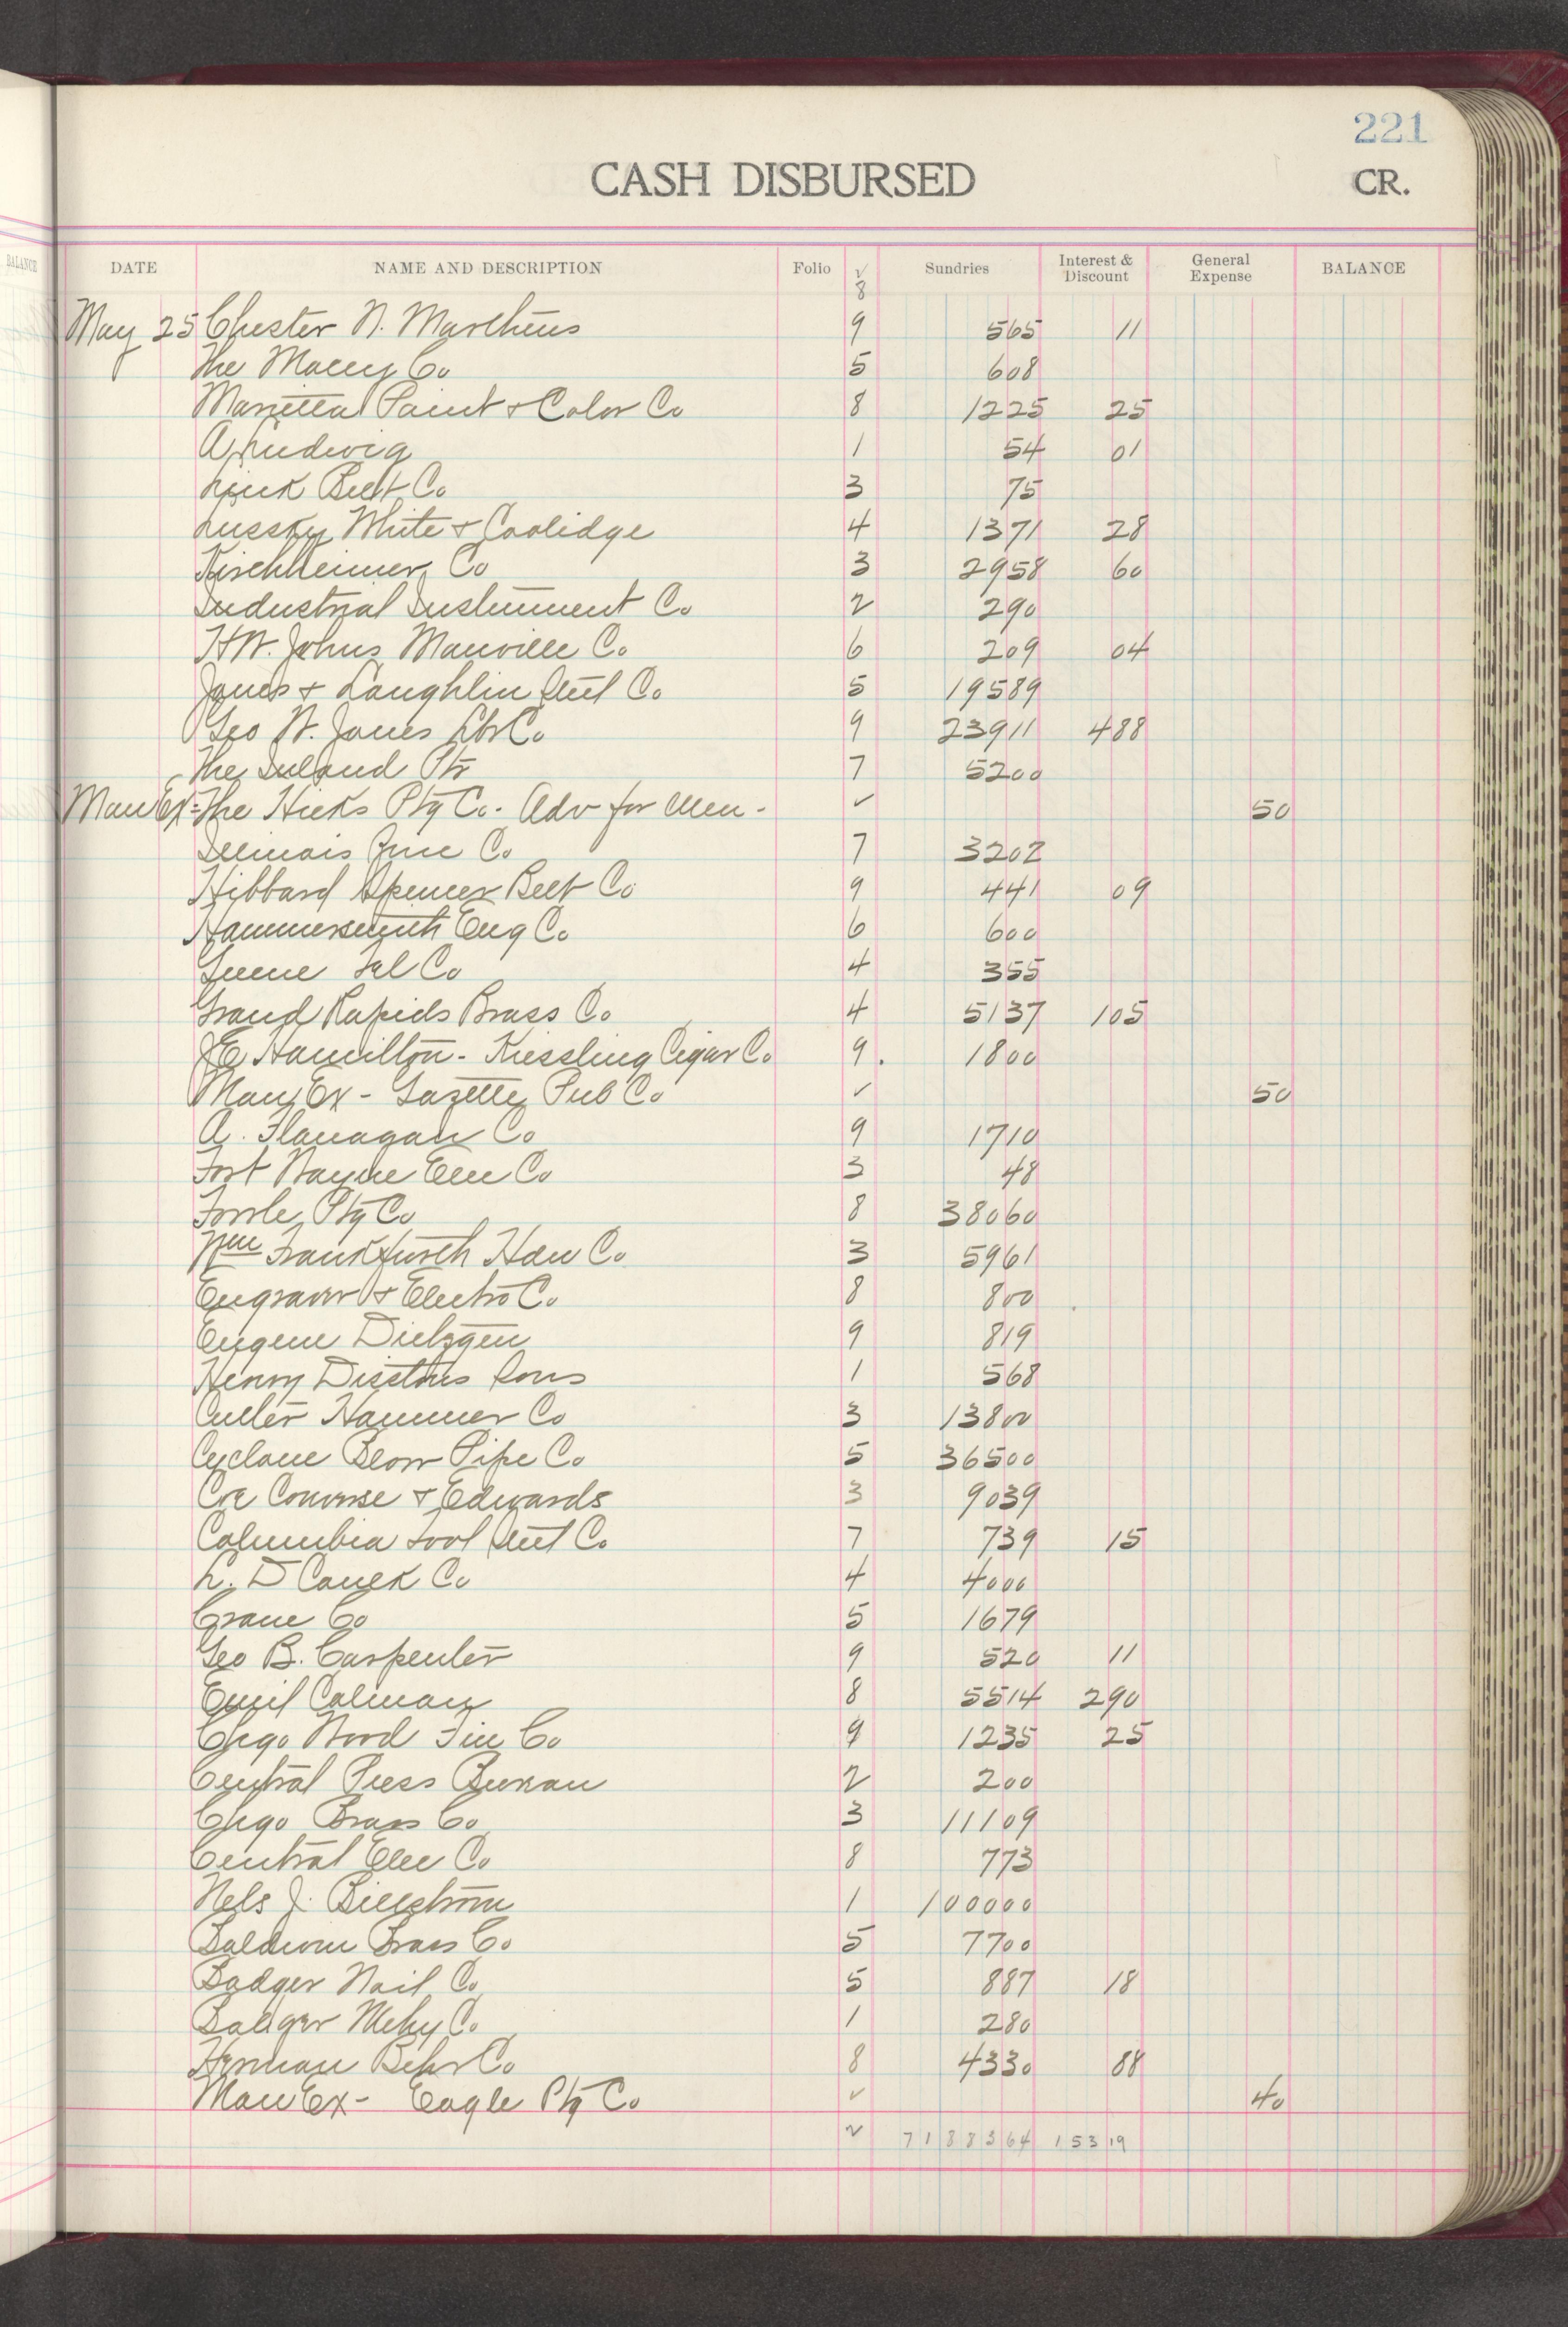 221
CASH DISBURSED CR.
BALANCE
DATE NAME AND DESCRIPTION Folio ✓ Sundries Interest & Discount General Expense BALANCE
8
May 25 Chester N. Marthens 9 565 11
The Macey Co 5 608
Marietta Paint & Color Co 8 1225 25
A Ludwig 1 54 01
Link Belt Co 3 75
Lussky White & Coolidge 4 1371 28
Kirchheimer Co 3 2958 60
Industrial Instrument Co 2 290
H W. Johns Manville Co 6 209 04
Jones & Laughlin Steel Co 5 19589
Geo W. Jones Lbr Co 9 23911 488
The Inland Ptr 7 5200
Man Ex = The Hicks Ptg Co. Adv for Men - ✓ 50
Illinois Zinc Co 7 3202
Hibbard Spencer Bart Co 9 441 09
Hammersmith Eng Co 6 600
Greene Tel Co 4 355
Grand Rapids Brass Co 4 5137 105
J E Hamilton - Kiessling Cigar Co 9 . 1800
Man Ex - Gazette Pub Co ✓ 50
A. Flanagan Co 9 1710
Fort Wayne Elec Co 3 48
Ptg Co 8 38060
Wm Frankfurth Hdw Co 3 5961
Engraver & Electro Co 8 800
Eugene Dietzgen 9 819
Henry Disstons Sons 1 568
Cutler Hammer Co 3 13800
Cyclone Blow Pipe Co 5 36500
Coe Converse & Edwards 3 9039
Columbia Tool Steel Co 7 739 15
L. D Caulk Co 4 4000
Crane Co 5 1679
Geo B. Carpenter 9 520 11
Emil Calman 8 5514 290
Chgo Wood Fin Co 9 1235 25
Central Press Bureau 2 200
Chgo Brass Co 3 11109
Central Elec Co 8 773
Nels J. Billstrom 1 100000
Baldwin Brass Co 5 7700
Badger Nail Co 5 887 18
Badger Mchy Co 1 280
Herman Behr Co 8 4330 88
Man Ex - Eagle Ptg Co ✓ 40
✓ 7188364 15319